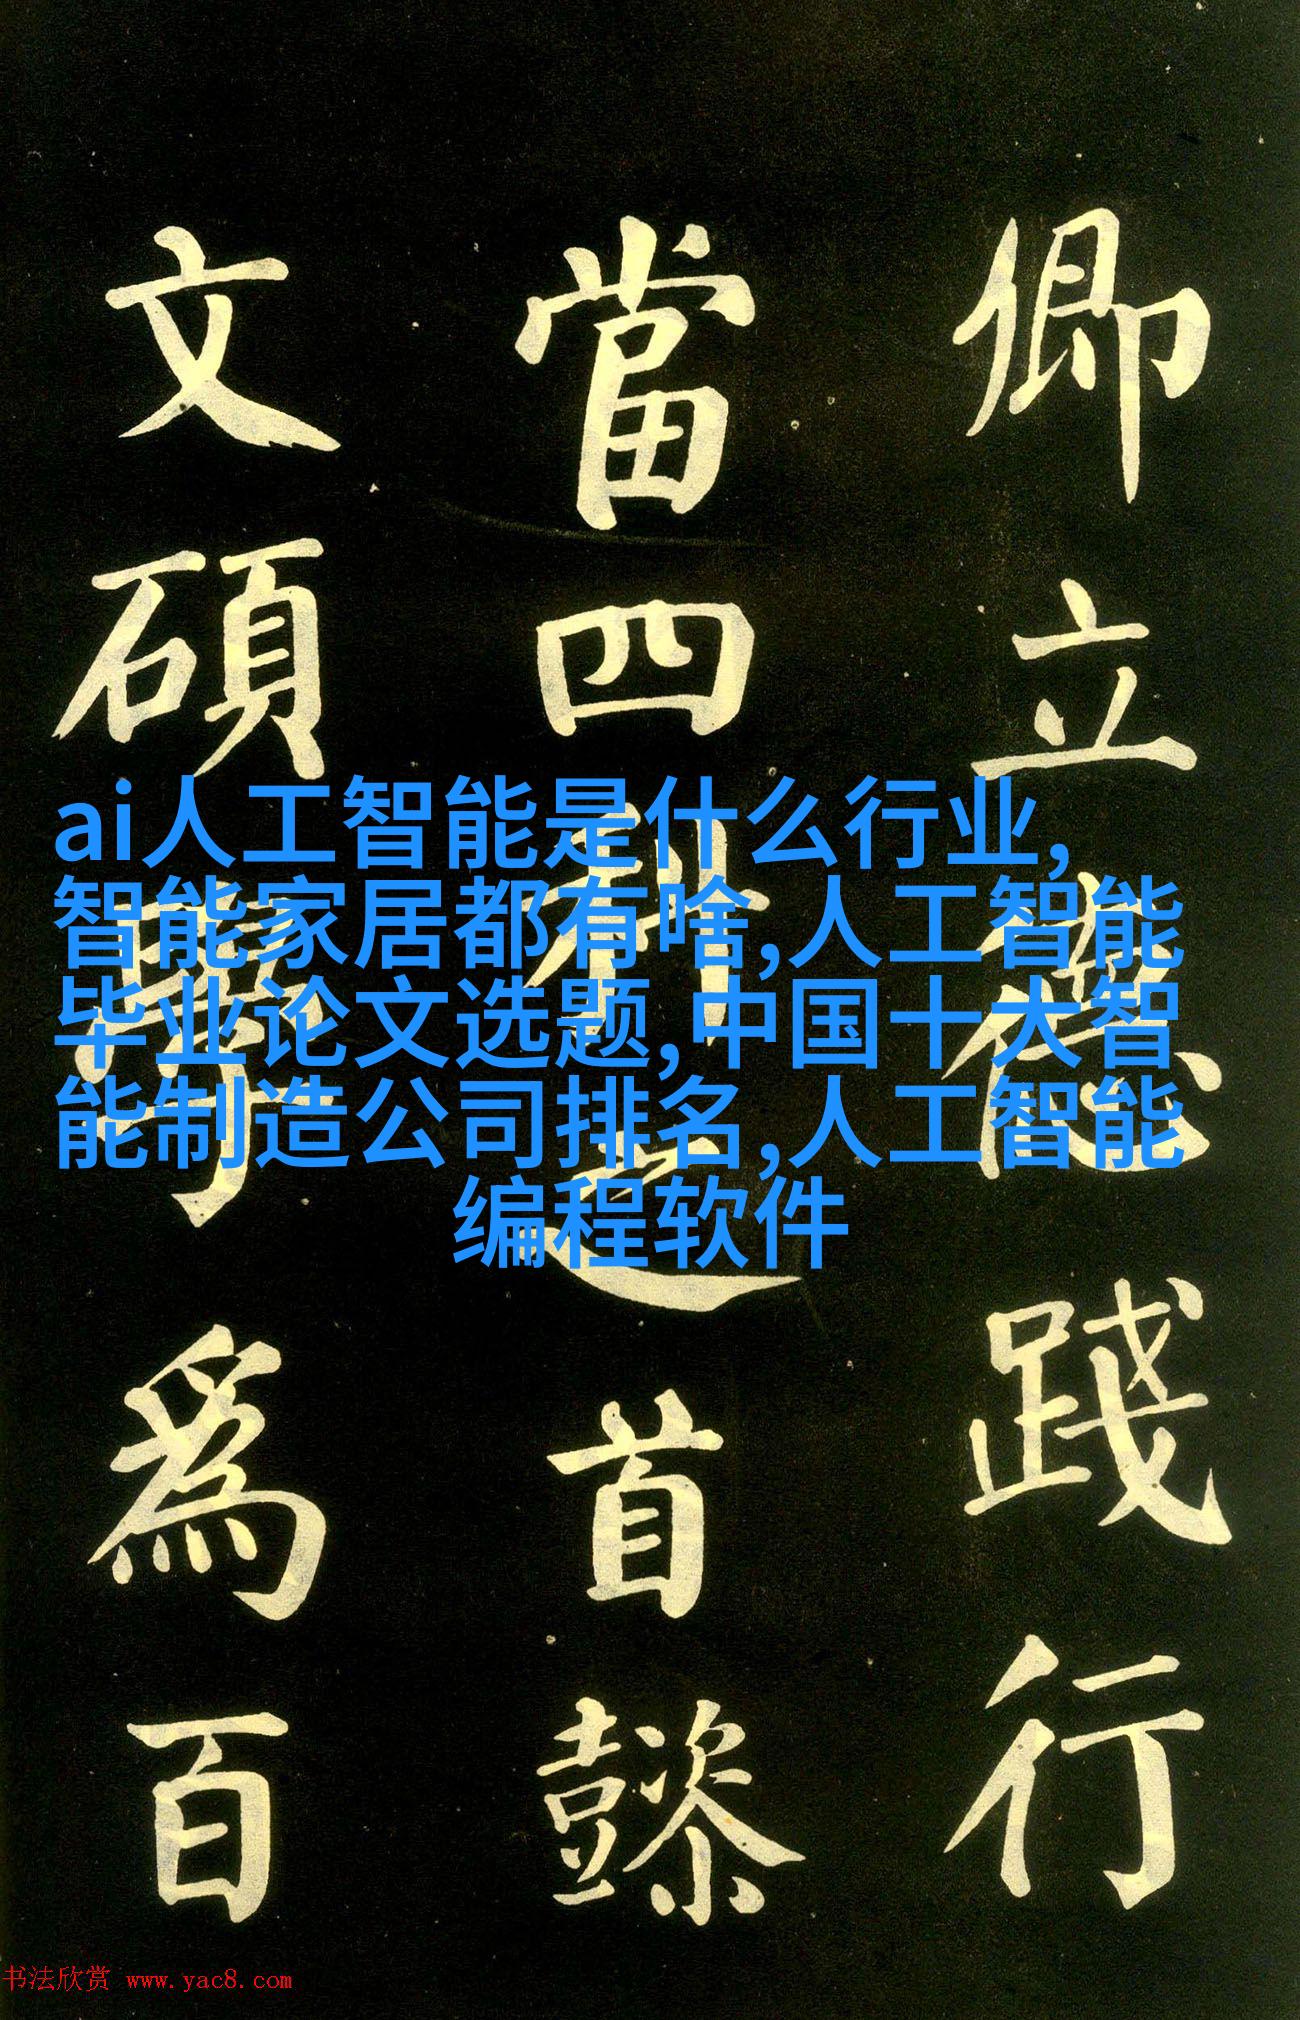 卿立德踐行
當四科之首懿
文碩學爲百
ai人工智能是什么行业,
智能家居都有啥,人工智能
毕业论文选题,中国十大智
能制造公司排名,人工智能
编程软件
书法欣赏 www.yac8.com